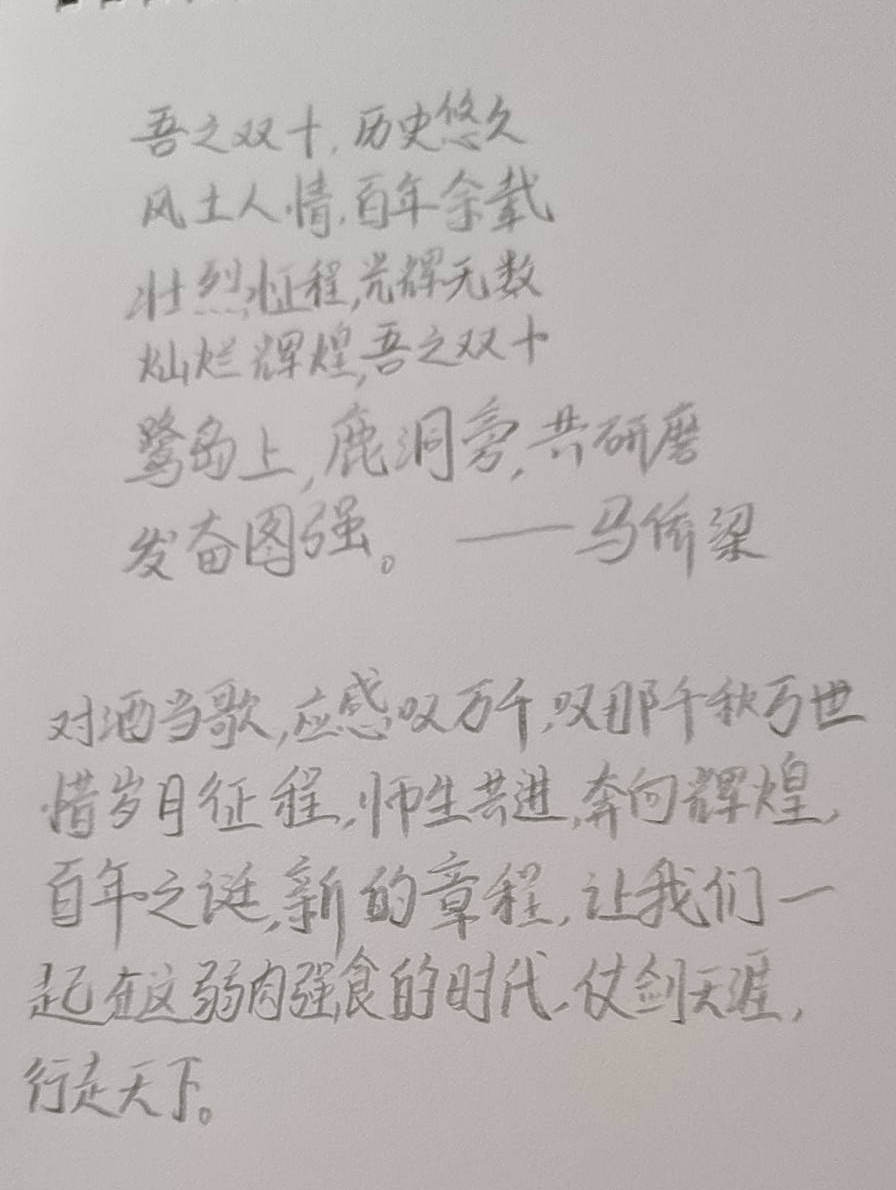 吾之双十,历史悠久
风土人情,百年余载
壮烈征程,光辉无数
灿烂辉煌,吾之双十
鹭岛上,鹿洞旁,共研磨
发奋图强。——马侨梁
对酒当歌,应感叹万千,叹那千秋万世
惜岁月征程,师生共进,奔向辉煌,
百年之诞,新的章程,让我们一
起在这弱肉强食的时代,仗剑天涯,
行走天下。